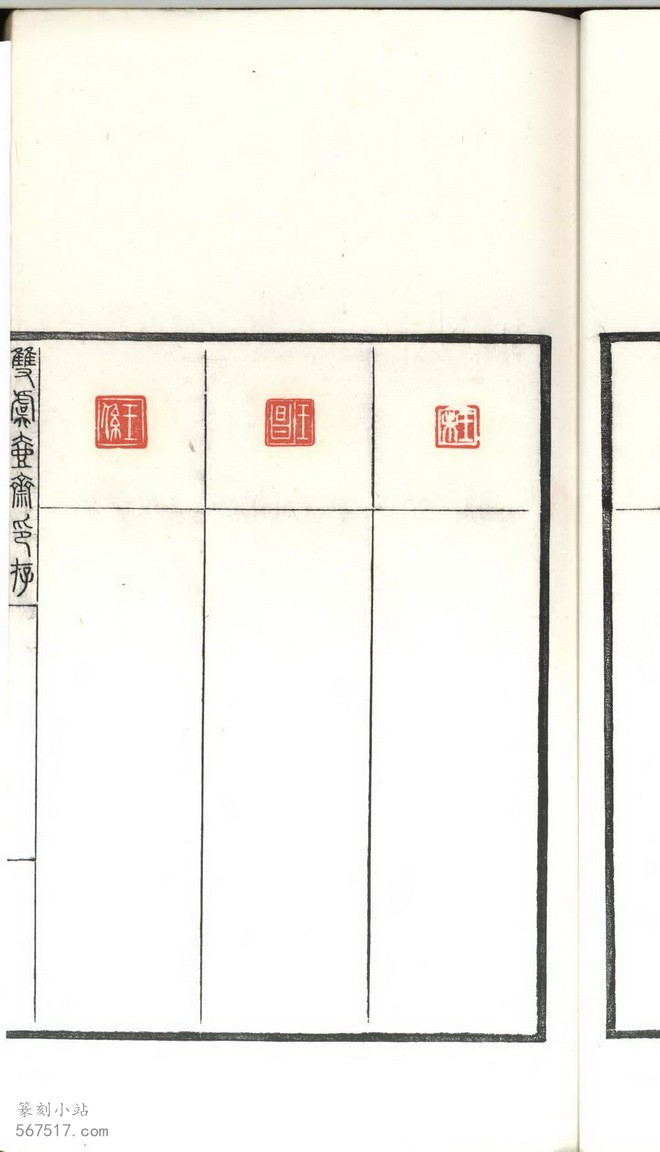 王昌
王
雙虞壺齋印存
篆刻小站
567517.com